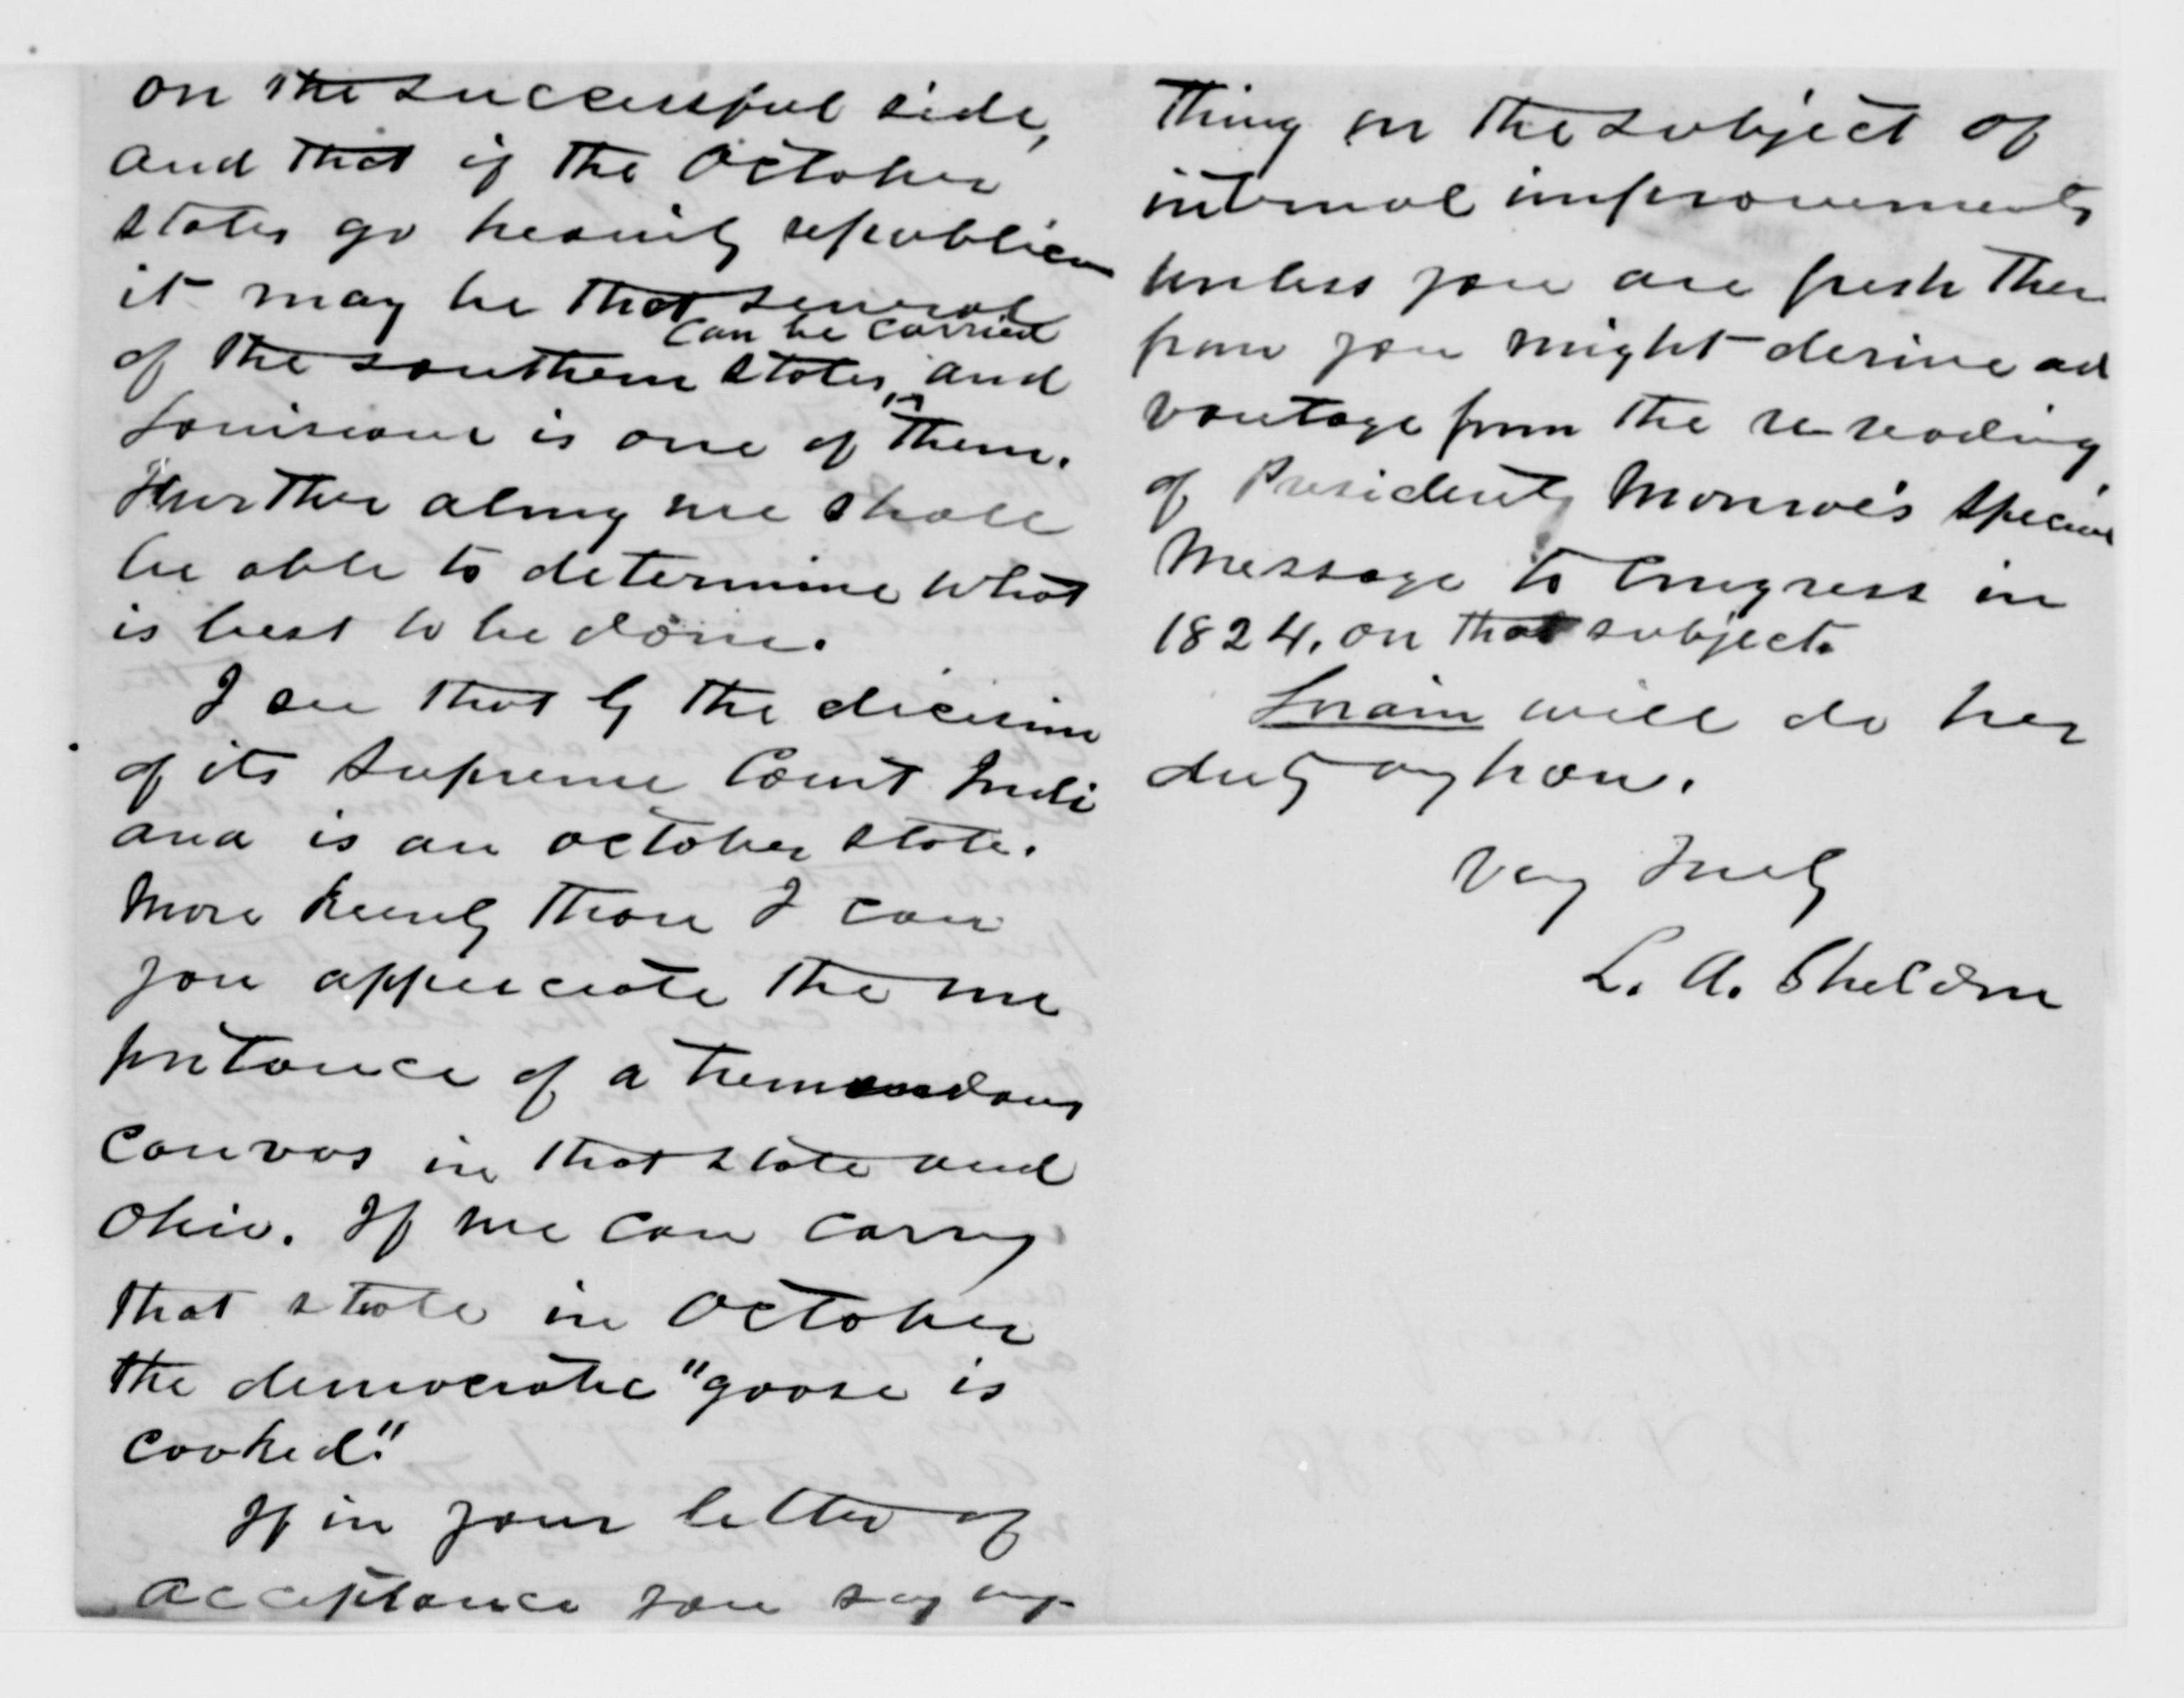 on the successful side,
and that if the October
states go heavily republican
it may be that several
can be carried
of the southern states, and
Louisiana is one of them.
Further along we shall
be able to determine what
is best to be done.
I see that by the decision
of its Supreme Court Indi
ana is an october state.
More keenly than I can
you appreciate the im
portance of a tremendous
canvas in that state and
Ohio. If we can carry
that state in October
the democratic "goose is
cooked."
If in your letter of
acceptance you say any-
thing on the subject of
internal improvements
unless you are fresh there
from you might derive ad
vantage from the re-reading
of Presidents Monroe's special
Message to Congress in
1824, on that subject.
Lorain will do her
duty anyhow.
Very Truly
L. A. Sheldon